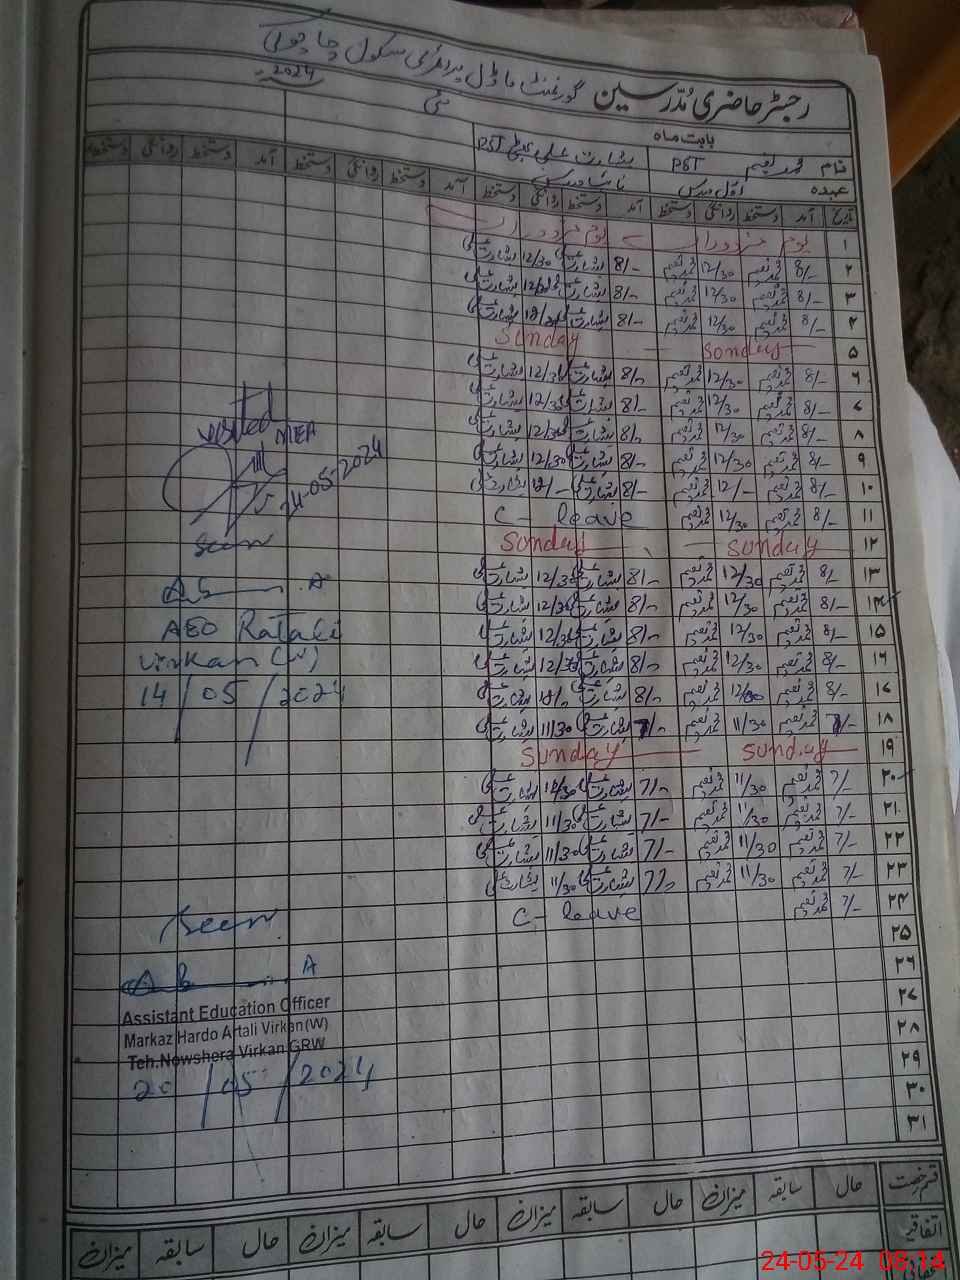 رجسٹر حاضری مُدرسین گورنمنٹ ماڈل پرائمری سکول
بابت ماہ مئی 2024
نام محمد نعیم PST بشارت علی PST
عہدہ اول مدرس
تاریخ آمد دستخط روانگی دستخط آمد دستخط روانگی دستخط آمد دستخط روانگی دستخط آمد دستخط روانگی دستخط
۱ یوم مزدوراں یوم مزدوراں
۲ 8/- محمد نعیم 12/30 محمد نعیم 8/- بشارت علی 12/30 بشارت علی
۳ 8/- محمد نعیم 12/30 محمد نعیم 8/- بشارت علی 12/30 بشارت علی
۴ 8/- محمد نعیم 12/30 محمد نعیم 8/- بشارت علی 12/30 بشارت علی
۵ Sunday Sunday
۶ 8/- محمد نعیم 12/30 محمد نعیم 8/- بشارت علی 12/30 بشارت علی
۷ 8/- محمد نعیم 12/30 محمد نعیم 8/- بشارت علی 12/30 بشارت علی
۸ 8/- محمد نعیم 12/30 محمد نعیم 8/- بشارت علی 12/30 بشارت علی
۹ 8/- محمد نعیم 12/30 محمد نعیم 8/- بشارت علی 12/30 بشارت علی
۱۰ 8/- محمد نعیم 12/- محمد نعیم 8/- بشارت علی 12/- بشارت علی
۱۱ 8/- محمد نعیم 12/30 محمد نعیم C - leave
۱۲ Sunday Sunday
۱۳ 8/- محمد نعیم 12/30 محمد نعیم 8/- بشارت علی 12/30 بشارت علی
۱۴ 8/- محمد نعیم 12/30 محمد نعیم 8/- بشارت علی 12/30 بشارت علی
۱۵ 8/- محمد نعیم 12/30 محمد نعیم 8/- بشارت علی 12/30 بشارت علی
۱۶ 8/- محمد نعیم 12/30 محمد نعیم 8/- بشارت علی 12/30 بشارت علی
۱۷ 8/- محمد نعیم 8/- بشارت علی بشارت علی
۱۸ 7/- محمد نعیم 11/30 محمد نعیم 7/- بشارت علی 11/30 بشارت علی
۱۹ Sunday Sunday
۲۰ 7/- محمد نعیم 11/30 محمد نعیم 7/- بشارت علی بشارت علی
۲۱ 7/- محمد نعیم 11/30 محمد نعیم 7/- بشارت علی 11/30 بشارت علی
۲۲ 7/- محمد نعیم 11/30 محمد نعیم 7/- بشارت علی 11/30 بشارت علی
۲۳ 7/- محمد نعیم 11/30 محمد نعیم 7/- بشارت علی 11/30 بشارت علی
۲۴ 7/- محمد نعیم C - leave
۲۵
۲۶
۲۷
۲۸
۲۹
۳۰
۳۱
visited
MEA
14-05-2024
Seen
AEO Ratali
Virkan (W)
14/05/2024
Seen
Assistant Education Officer
Markaz Hardo Artali Virkan(W)
Teh.Nowshera Virkan GRW
20/05/2024
قسم رخصت حال سابقہ میزان حال سابقہ میزان حال سابقہ میزان حال سابقہ میزان
اتفاقیہ
24-05-24 08:14